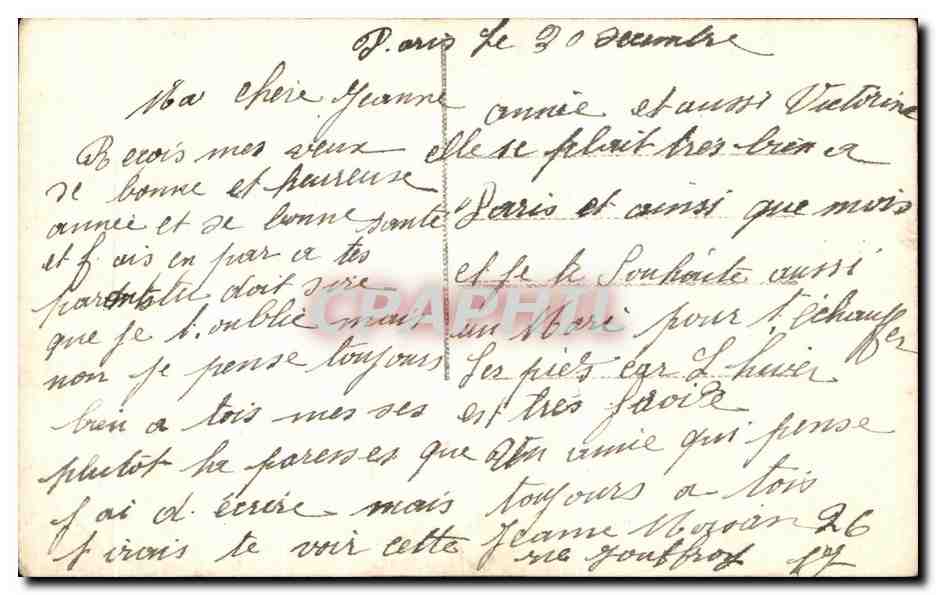 Paris Le 20 decembre
Ma chere Jeanne
Recois mes veux
de bonne et heureuse
année et de bonne santé
et fais en par a tes
parents tu doit dire
que je t.oublie mais
non je pense toujours
bien a tois mes ses
plutôt la paresses que
j ai d. écrire mais
j irais te voir cette
année et aussi Victorine
elle se plait tres bien a
Paris et ainsi que mois
et je te Souhaite aussi
un Mari pour t.échauffer
Les pieds car L hiver
est très froide
Un amie qui pense
toujours a tois
Jeanne 26
rue Jouffroy 17
CPAPHIL